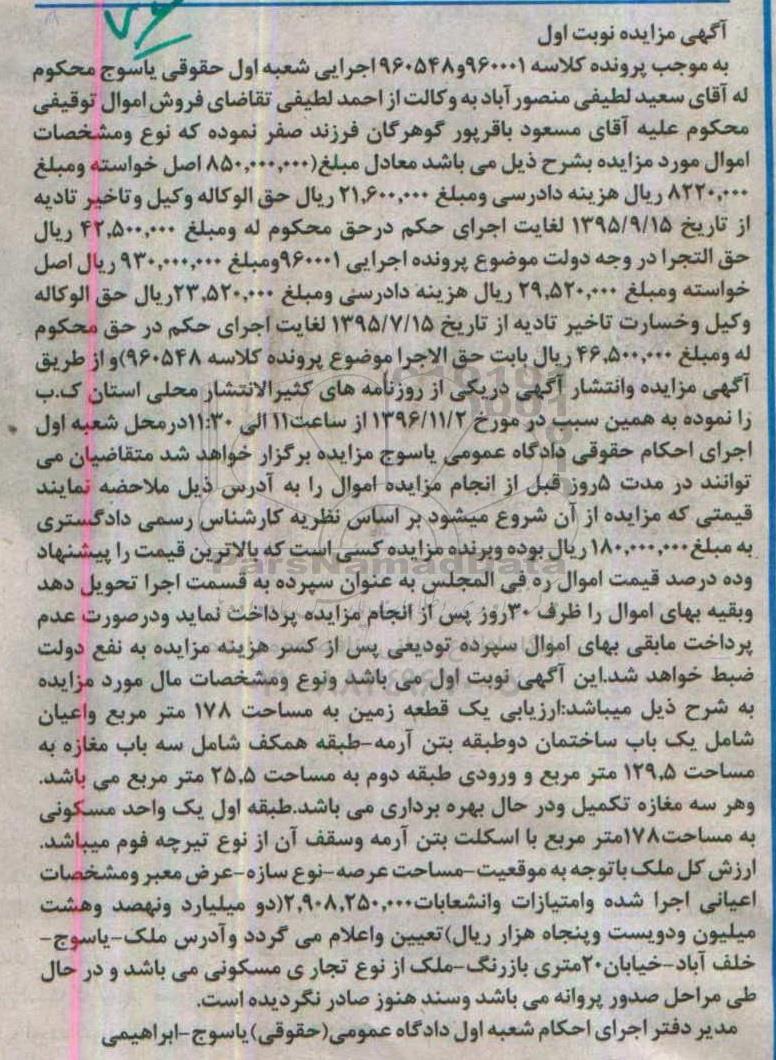 آگهی مزایده نوبت اول
به موجب پرونده کلاسه ۹۶۰۰۰۱و۹۶۰۵۴۸اجرایی شعبه اول حقوقی یاسوج محکوم
له آقای سعید لطیفی منصور آباد به وکالت از احمد لطیفی تقاضای فروش اموال توقیفی
محکوم علیه آقای مسعود باقرپور گوهرگان فرزند صفر نموده که نوع ومشخصات
اموال مورد مزایده بشرح ذیل می باشد معادل مبلغ(۸۵۰,۰۰۰,۰۰۰ اصل خواسته ومبلغ
۸۲۲۰,۰۰۰ ریال هزینه دادرسی ومبلغ ۲۱,۶۰۰,۰۰۰ ریال حق الوکاله وکیل وتاخیر تادیه
از تاریخ ۱۳۹۵/۹/۱۵ لغایت اجرای حکم درحق محکوم له ومبلغ ۴۲,۵۰۰,۰۰۰ ریال
حق التجرا در وجه دولت موضوع پرونده اجرایی ۹۶۰۰۰۱ومبلغ ۹۳۰,۰۰۰,۰۰۰ ریال اصل
خواسته ومبلغ ۲۹,۵۲۰,۰۰۰ ریال هزینه دادرسی ومبلغ ۲۳,۵۲۰,۰۰۰ریال حق الوکاله
وکیل وخسارت تاخیر تادیه از تاریخ ۱۳۹۵/۷/۱۵ لغایت اجرای حکم در حق محکوم
له ومبلغ ۴۶,۵۰۰,۰۰۰ ریال بابت حق الاجرا موضوع پرونده کلاسه ۹۶۰۵۴۸)و از طریق
آگهی مزایده وانتشار آگهی دریکی از روزنامه های کثیرالانتشار محلی استان ک.ب
را نموده به همین سبب در مورخ ۱۳۹۶/۱۱/۲ از ساعت۱۱ الی ۱۱:۳۰درمحل شعبه اول
اجرای احکام حقوقی دادگاه عمومی یاسوج مزایده برگزار خواهد شد متقاضیان می
توانند در مدت ۵روز قبل از انجام مزایده اموال را به آدرس ذیل ملاحضه نمایند
قیمتی که مزایده از آن شروع میشود بر اساس نظریه کارشناس رسمی دادگستری
به مبلغ۱۸۰,۰۰۰,۰۰۰ ریال بوده وبرنده مزایده کسی است که بالاترین قیمت را پیشنهاد
وده درصد قیمت اموال ره فی المجلس به عنوان سپرده به قسمت اجرا تحویل دهد
وبقیه بهای اموال را ظرف ۳۰روز پس از انجام مزایده پرداخت نماید ودرصورت عدم
پرداخت مابقی بهای اموال سپرده تودیعی پس از کسر هزینه مزایده به نفع دولت
ضبط خواهد شد.این آگهی نوبت اول می باشد ونوع ومشخصات مال مورد مزایده
به شرح ذیل میباشد:ارزیابی یک قطعه زمین به مساحت ۱۷۸ متر مربع واعیان
شامل یک باب ساختمان دوطبقه بتن آرمه-طبقه همکف شامل سه باب مغازه به
مساحت ۱۲۹,۵ متر مربع و ورودی طبقه دوم به مساحت ۲۵,۵ متر مربع می باشد.
وهر سه مغازه تکمیل ودر حال بهره برداری می باشد.طبقه اول یک واحد مسکونی
به مساحت۱۷۸متر مربع با اسکلت بتن آرمه وسقف آن از نوع تیرچه فوم میباشد.
ارزش کل ملک باتوجه به موقعیت-مساحت عرصه-نوع سازه-عرض معبر ومشخصات
اعیانی اجرا شده وامتیازات وانشعابات۲,۹۰۸,۲۵۰,۰۰۰(دو میلیارد ونهصد وهشت
میلیون ودویست وپنجاه هزار ریال)تعیین واعلام می گردد وآدرس ملک-یاسوج-
خلف آباد-خیابان۲۰متری بازرنگ-ملک از نوع تجاری مسکونی می باشد و در حال
طی مراحل صدور پروانه می باشد وسند هنوز صادر نگردیده است.
مدیر دفتر اجرای احکام شعبه اول دادگاه عمومی(حقوقی)یاسوج-ابراهیمی
ParsNamadData